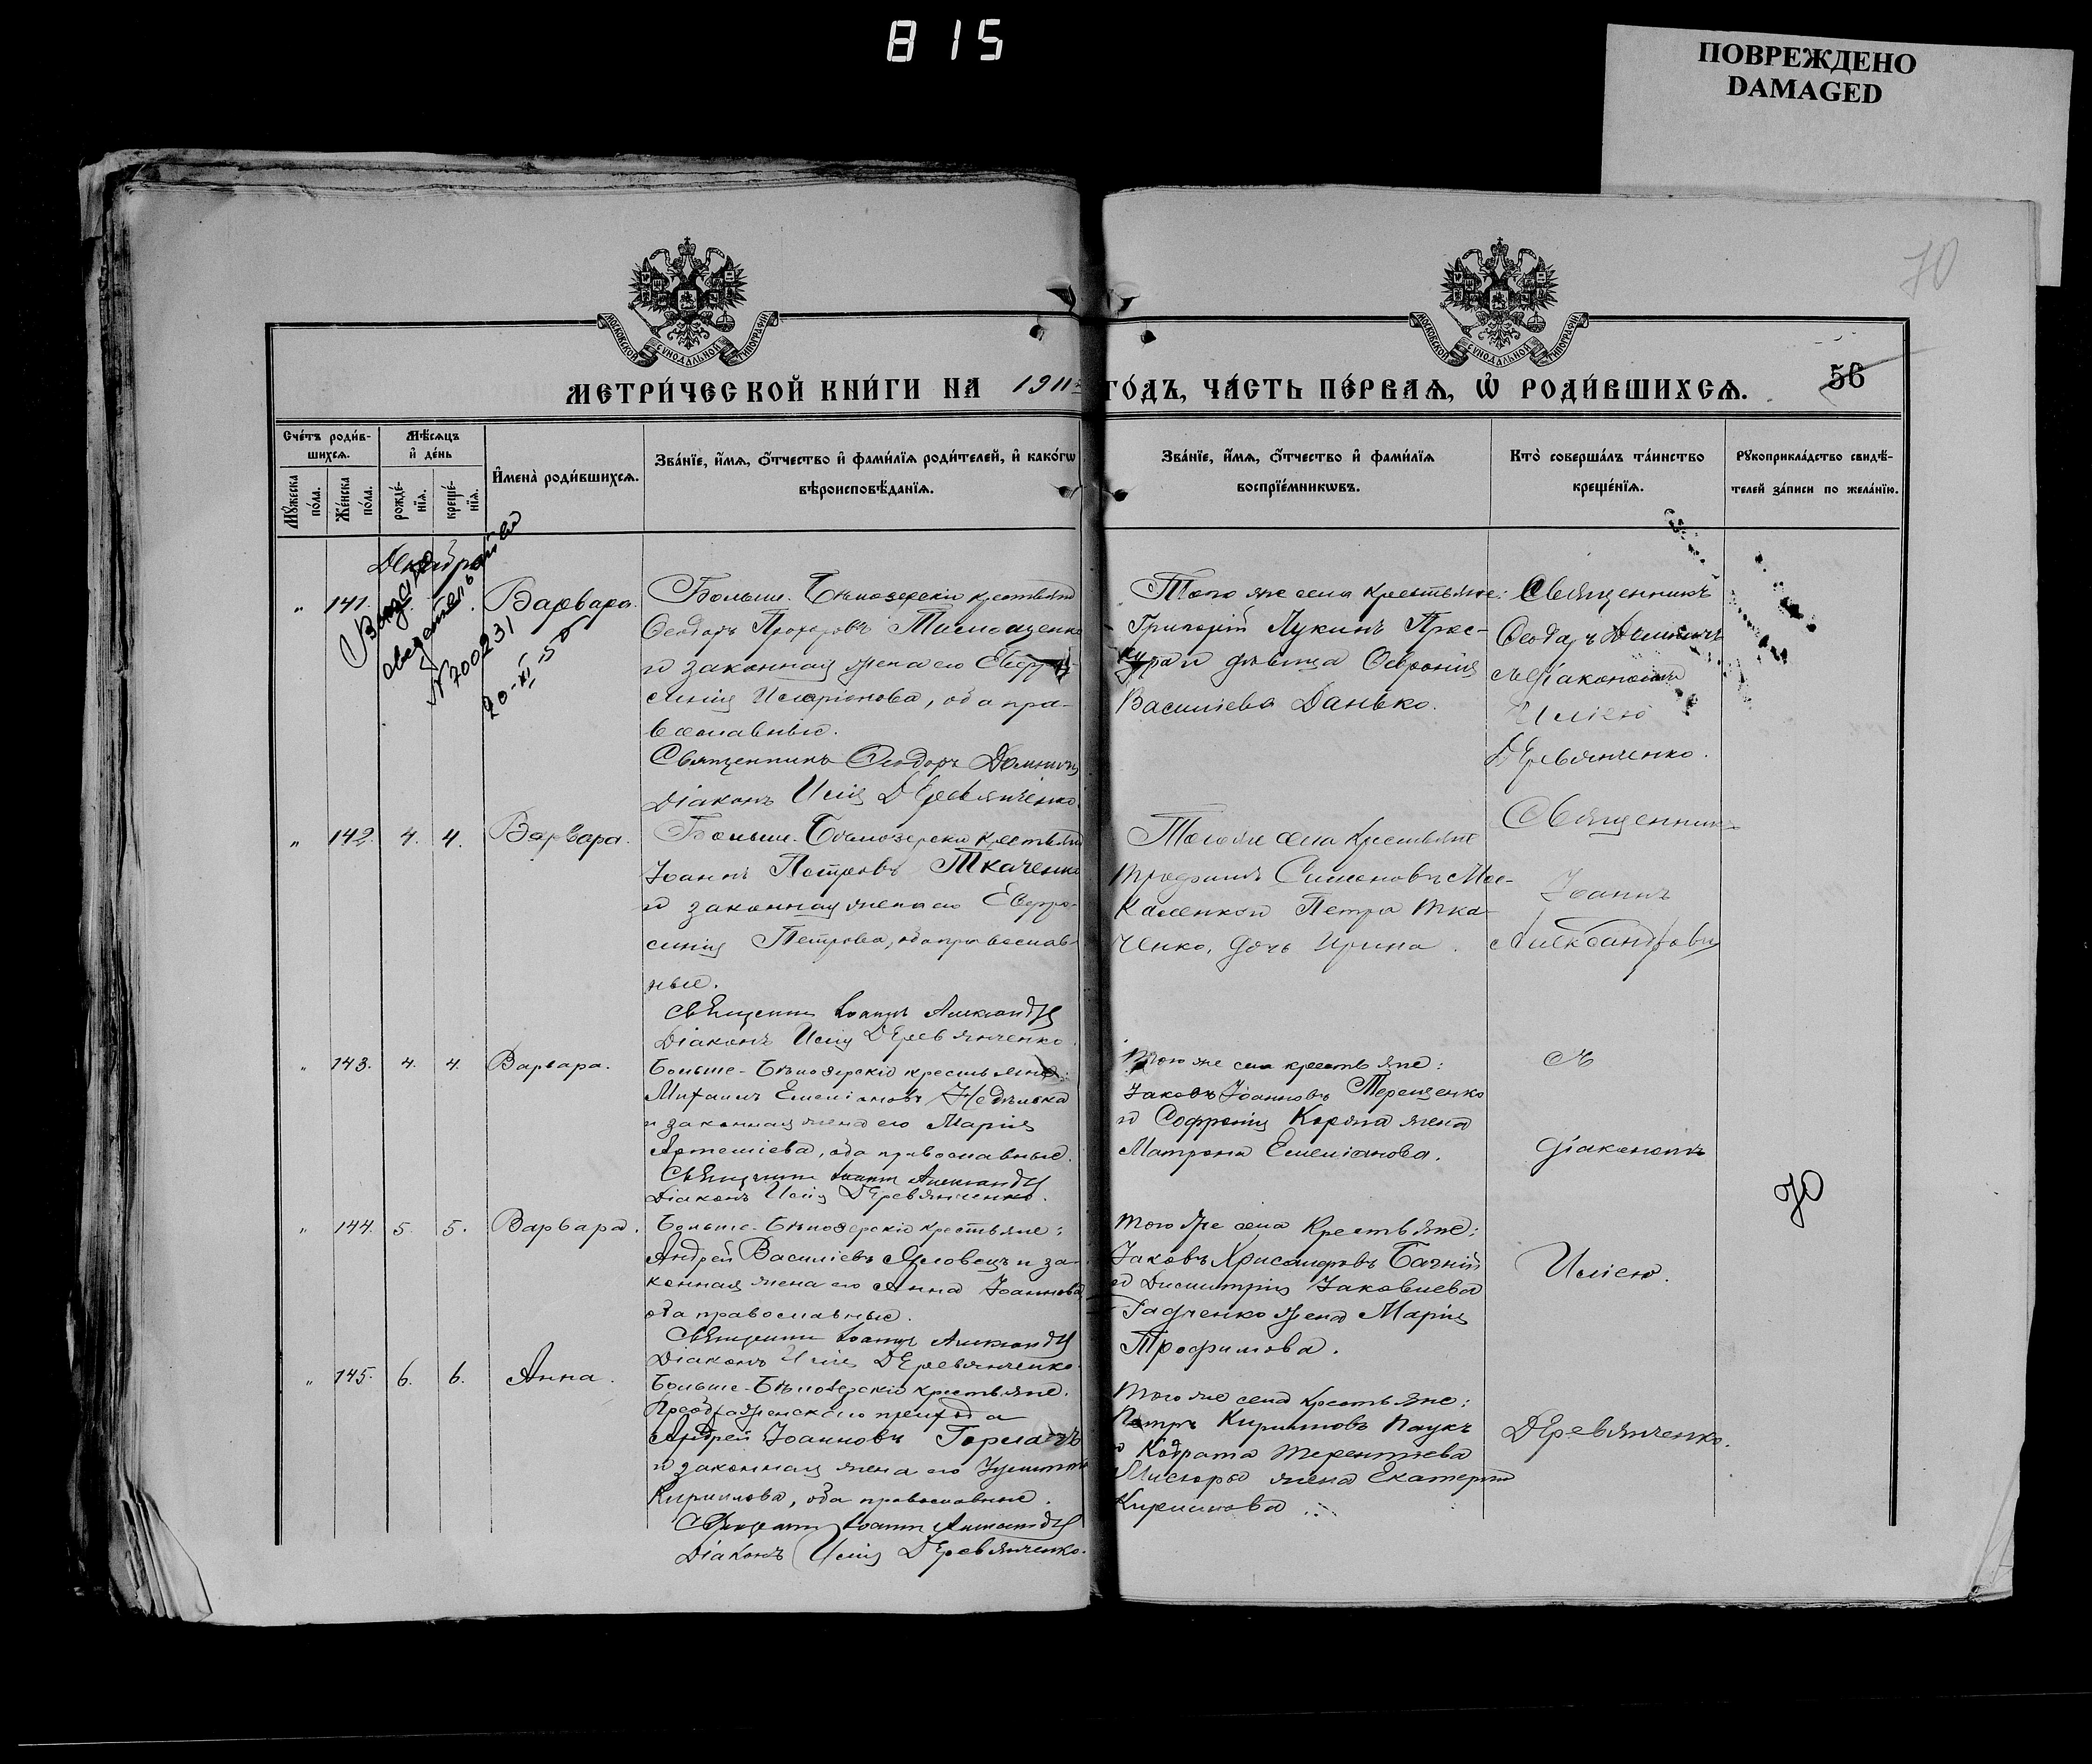 815
ПОВРЕЖДЕНО
DAMAGED
70
МОСКОВСКОЙ СѴНОДАЛЬНОЙ ТИПОГРАФІИ
МОСКОВСКОЙ СѴНОДАЛЬНОЙ ТИПОГРАФІИ
МЕТРИ́ЧЕСКОЙ КНИ́ГИ НА 1911 ГО́ДЪ, ЧА́СТЬ ПЕ́РВАѦ, Ѡ҆ РОДИ́ВШИХСѦ.
56
Сче́тъ роди́вшихсѧ.
Мꙋ́жеска по́ла.
Же́нска по́ла.
Мѣ́сѧцъ и҆ де́нь
рожде́нїѧ.
креще́нїѧ.
И҆мена̀ роди́вшихсѧ.
Зва́нїе, и҆́мѧ, ѻ҆́тчество и҆ фами́лїѧ роди́телей, и҆ како́гѡ
вѣроисповѣ́данїѧ.
Зва́нїе, и҆́мѧ, ѻ҆́тчество и҆ фами́лїѧ
воспрїе́мникѡвъ.
Кто̀ соверша́лъ та́инство
креще́нїѧ.
Рꙋкоприкла́дство свидѣ́-
телей за́писи по жела́нїю.
Декабрь
N 700231
20-XI-50
„ 141.
Варвара.
Больше-Бѣлозерскіе крестьяне
Ѳеодоръ Прохоровъ
и законная жена его Евфро-
синія Иларіонова, оба пра-
вославные.
Священникъ Ѳеодоръ
Діаконъ Илія Деревянченко.
Того же села крестьяне:
Григорій Лукинъ Прос-
кура и дѣвица Ѳевронія
Василіева Данько.
Священникъ
Ѳеодоръ
съ діакономъ
Иліею
Деревянченко.
„ 142. 4. 4. Варвара.
Больше-Бѣлозерскіе крестьяне
Іоаннъ Петровъ Ткаченко
и законная жена его Евфро-
синія Петрова, оба православ-
ные.
Священникъ Іоаннъ Александровъ
Діаконъ Илія Деревянченко.
Того же села крестьяне
Трофимъ Симоновъ Мос-
каленко и Петра Тка-
ченко, дочь Ирина.
Священникъ
Іоаннъ
Александровъ
„ 143. 4. 4. Варвара.
Больше-Бѣлозерскіе крестьяне:
Михаилъ Емеліановъ Недѣлька
и законная жена его Марія
Артеміева, оба православные.
Священникъ Іоаннъ Александровъ
Діаконъ Илія Деревянченко.
Того же села крестьяне:
Іаковъ Іоанновъ Терещенко
и Софронія Коряка жена
Матрона Емеліанова.
съ
діакономъ
70
„ 144. 5. 5. Варвара.
Больше-Бѣлозерскіе крестьяне:
Андрей Василіевъ Яловецъ и за-
конная жена его Анна Іоаннова
оба православные.
Священникъ Іоаннъ Александровъ
Діаконъ Илія Деревянченко.
Того же села крестьяне:
Іаковъ Бачній
и Димитрія Іаковлева
Гадченко жена Марія
Трофимова.
Иліею.
„ 145. 6. 6. Анна.
Больше-Бѣлозерскіе крестьяне.
Преображенскаго прихода
Андрей Іоанновъ
и законная жена его
Кириллова, оба православные.
Священникъ Іоаннъ Александровъ
Діаконъ Илія Деревянченко.
Того же села крестьяне:
Петръ Кирилловъ Паукъ
и Кодрата Терентіева
Мисюры жена Екатерина
Кириллова
Деревянченко.